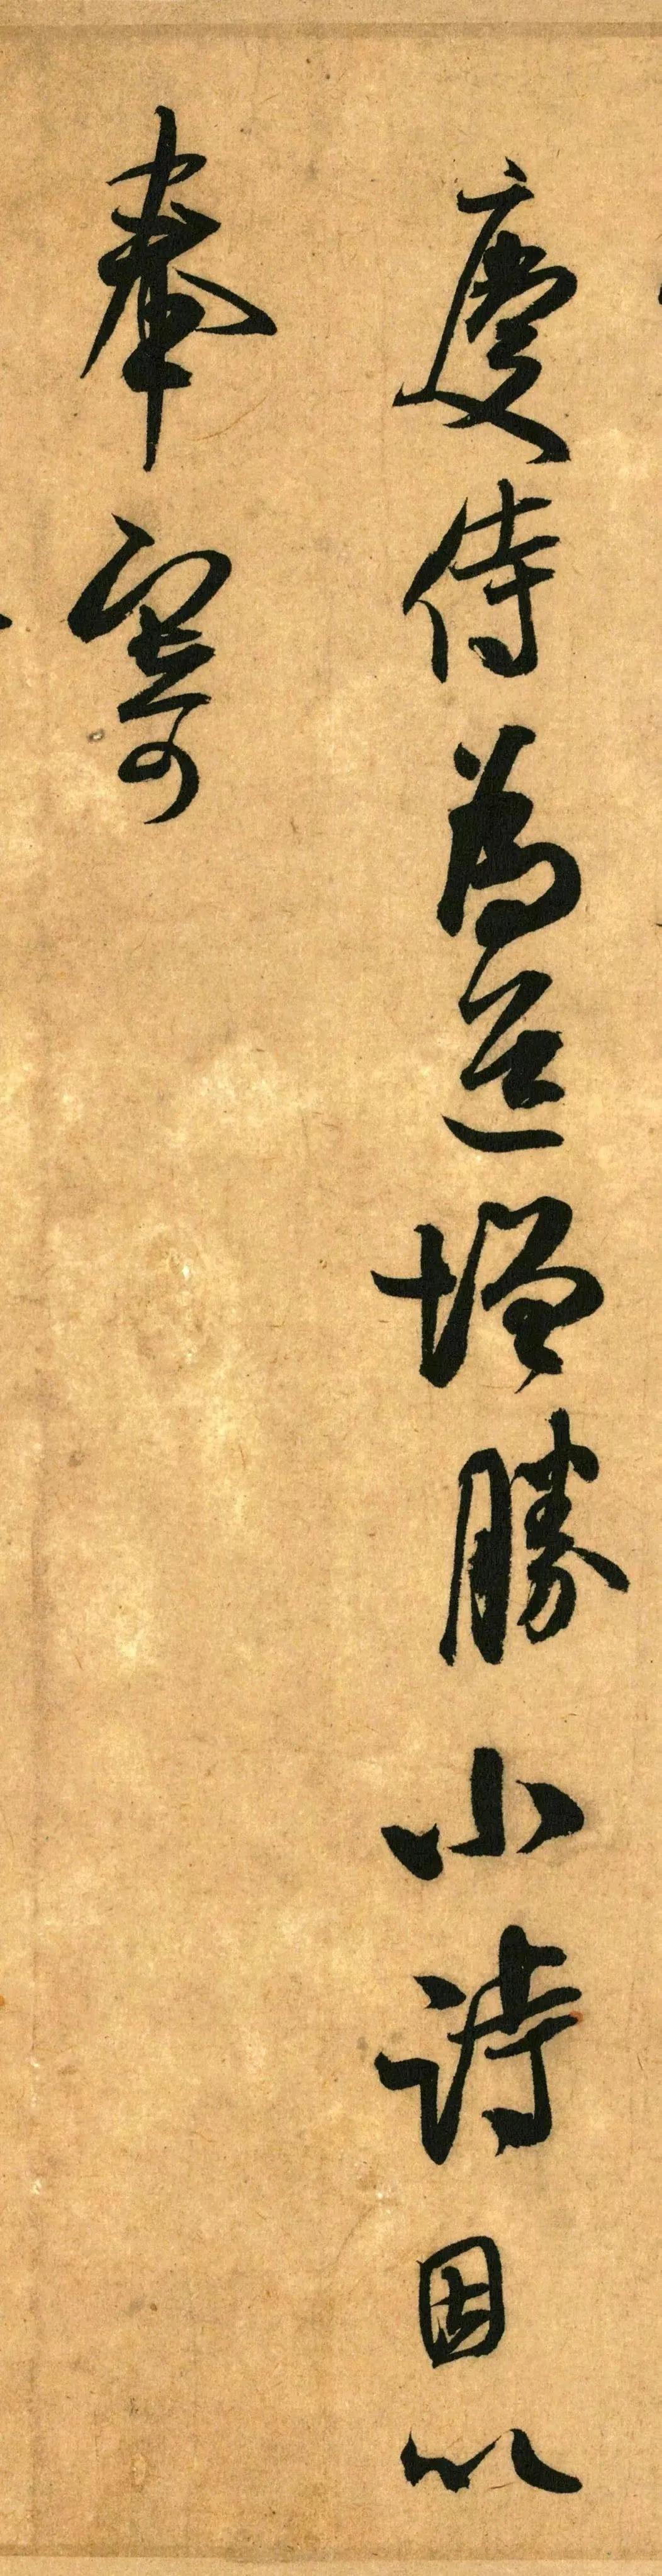 慶侍為道增勝小詩因以
奉寄